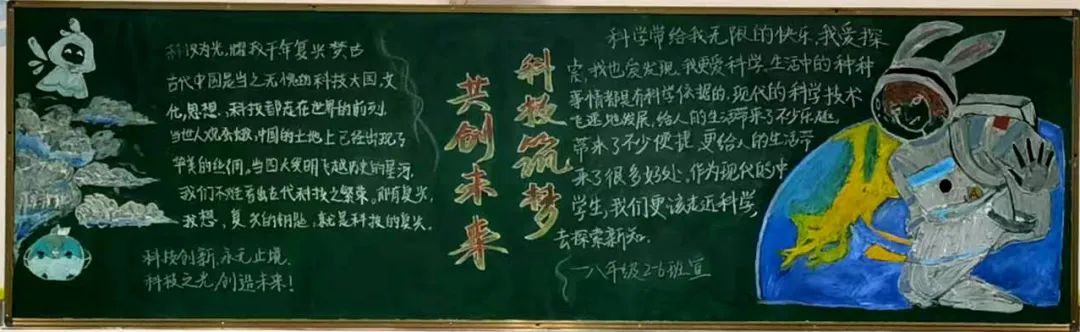 科技为光，照我千年复兴梦
古代中国是当之无愧的科技大国，文
化，思想，科技都走在世界的前列.
当世人观系嫩，中国的土地上已经出现了
华美的丝绸。当四大发明飞越历史的星河.
我们不难看出古代科技之繁荣。所有复兴，
我想，复兴的钥匙，就是科技的复兴。
科技创新，永无止境.
科技之光，创造未来！
科技筑梦
共创未来
科学带给我无限的快乐，我爱探
究，我也爱发现，我更爱科学。生活中的种种
事情都是有科学依据的，现代的科学技术
飞速地发展，给人的生活带来了不少乐趣，
带来了不少便捷，更给人的生活带
来了很多好处。作为现代的中
学生，我们更该走近科学，
去探索新知.
一八年级2-6班宣